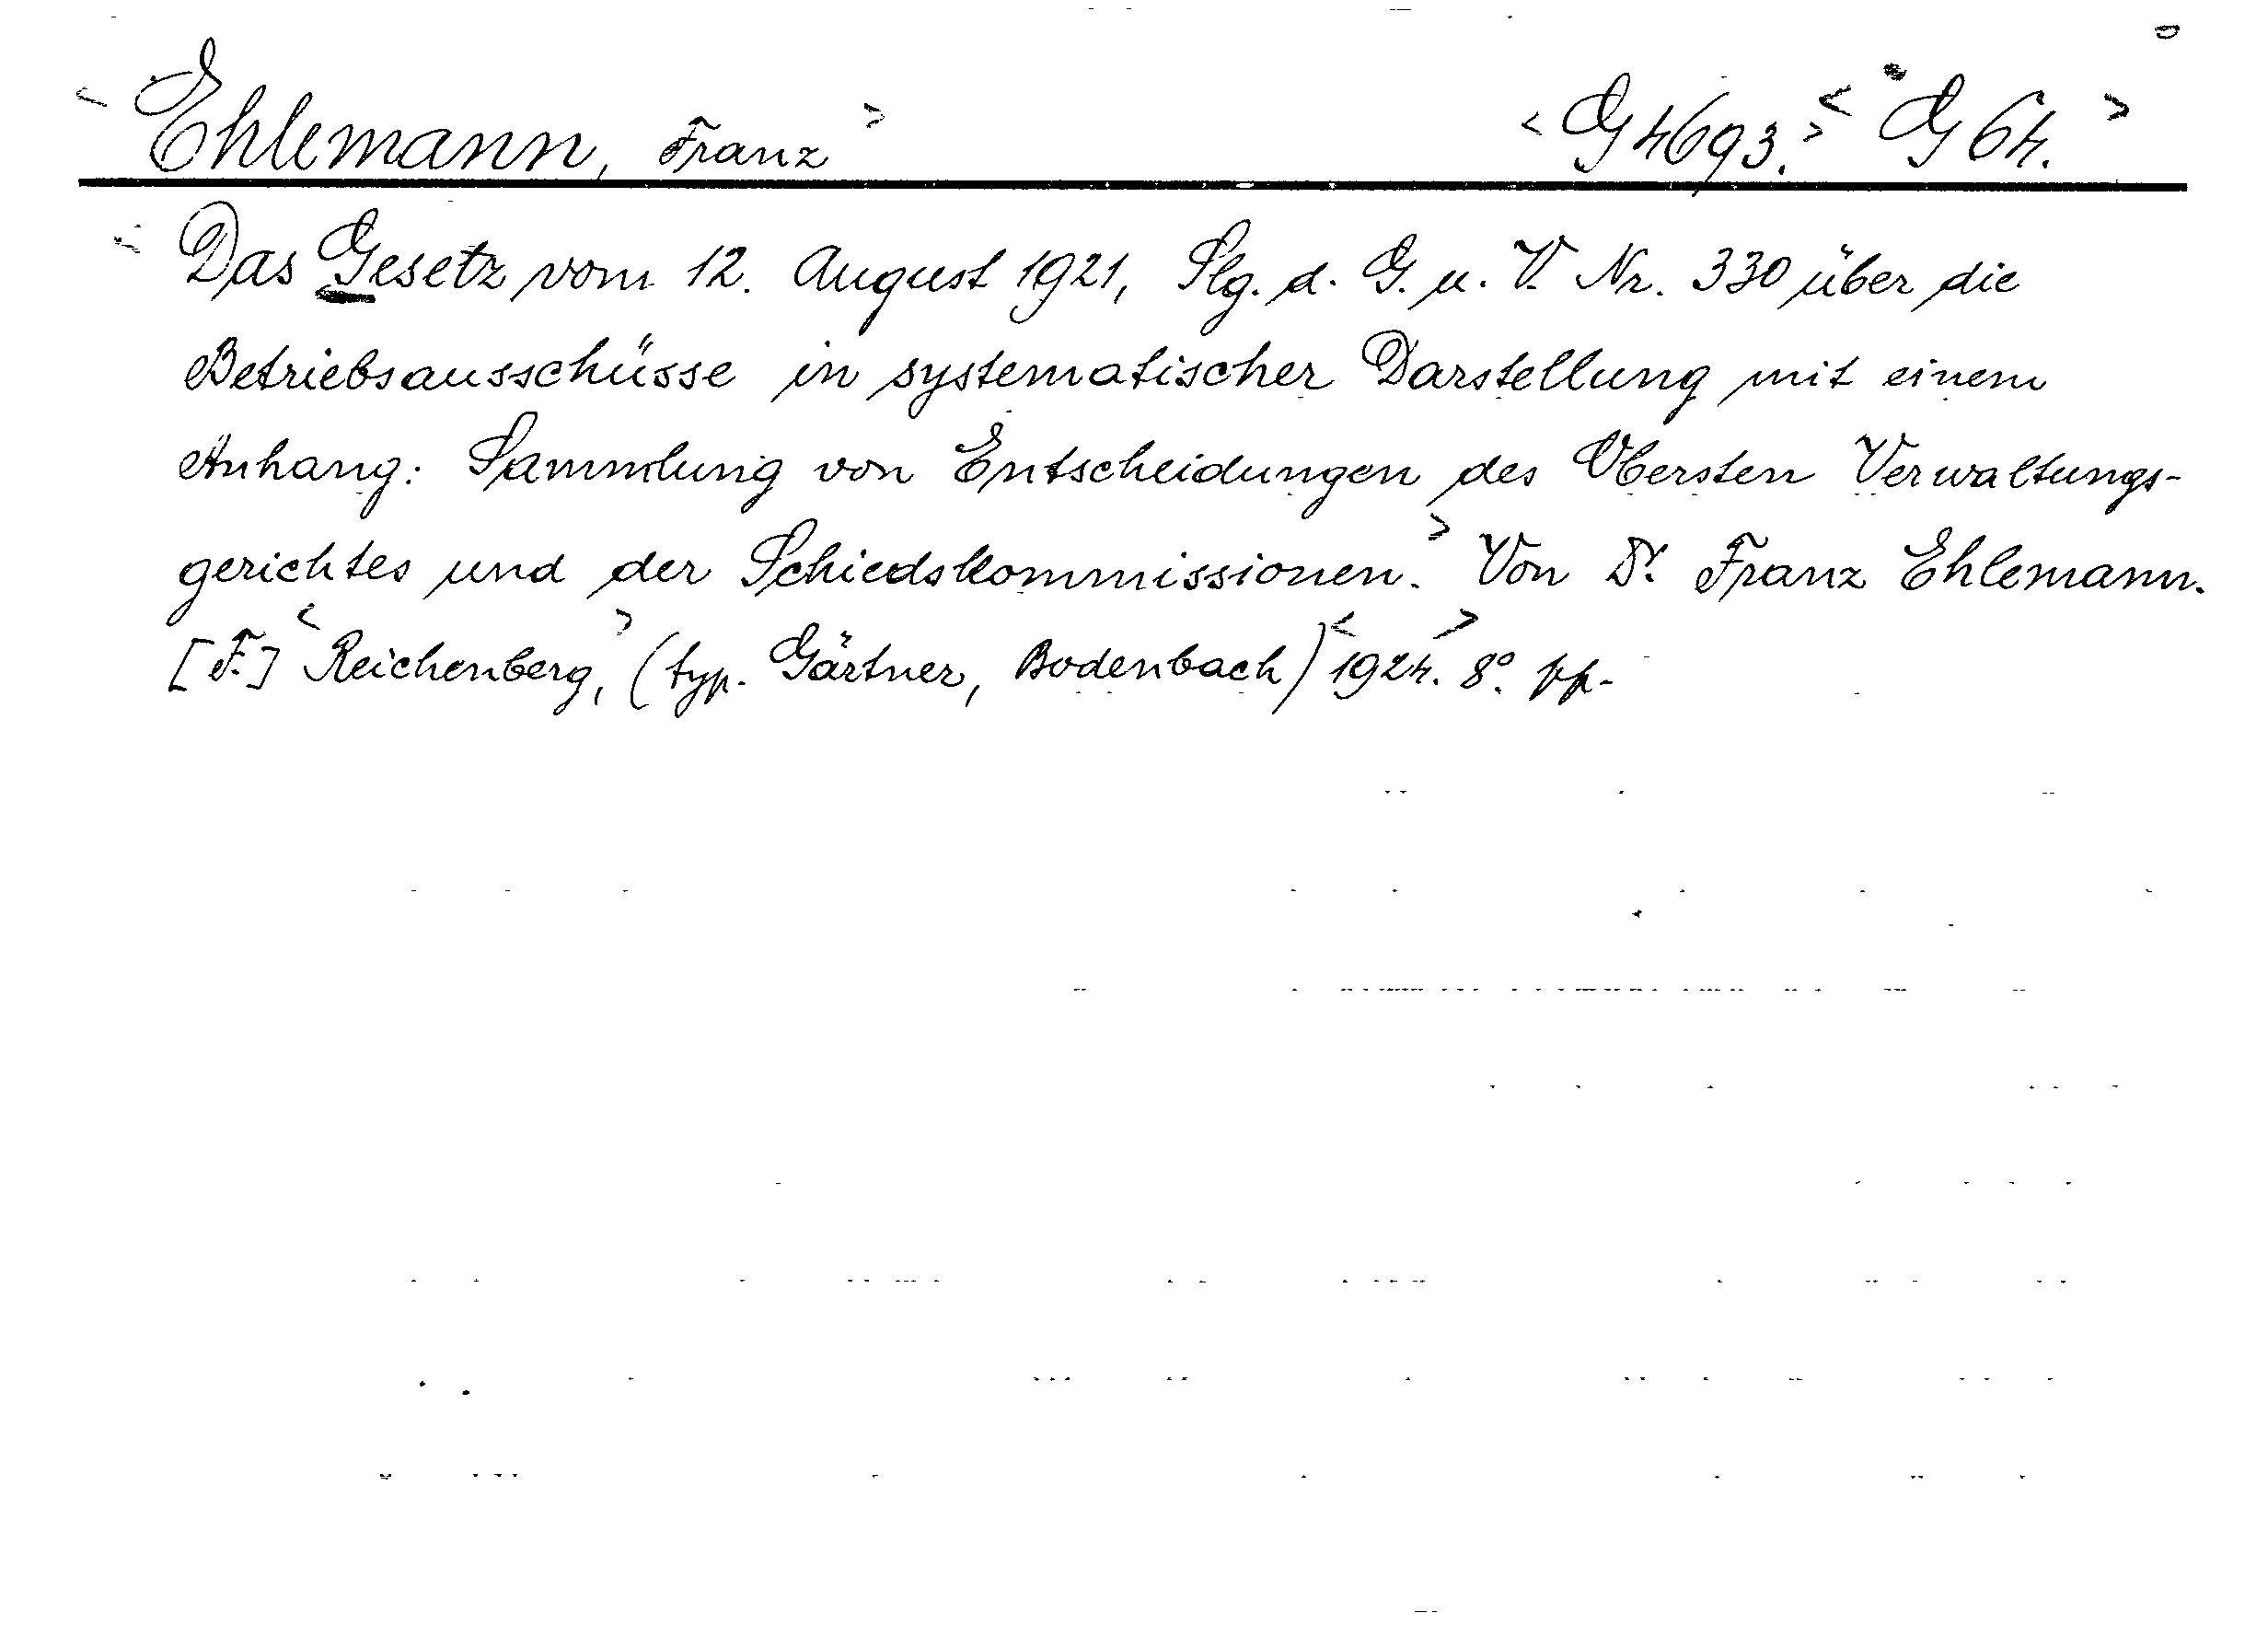 <Ehlemann, Franz> <G 4693.> <G 64.>
<Das Gesetz vom 12. August 1921, Slg. d. G. u. V. Nr. 330 über die
Betriebsausschüsse in systematischer Darstellung mit einem
Anhang: Sammlung von Entscheidungen des Obersten Verwaltungs-
gerichtes und der Schiedskommissionen.> Von Dr. Franz Ehlemann.
[F.] <Reichenberg,> (typ. Gärtner, Bodenbach) <1924.> 8°. pp-